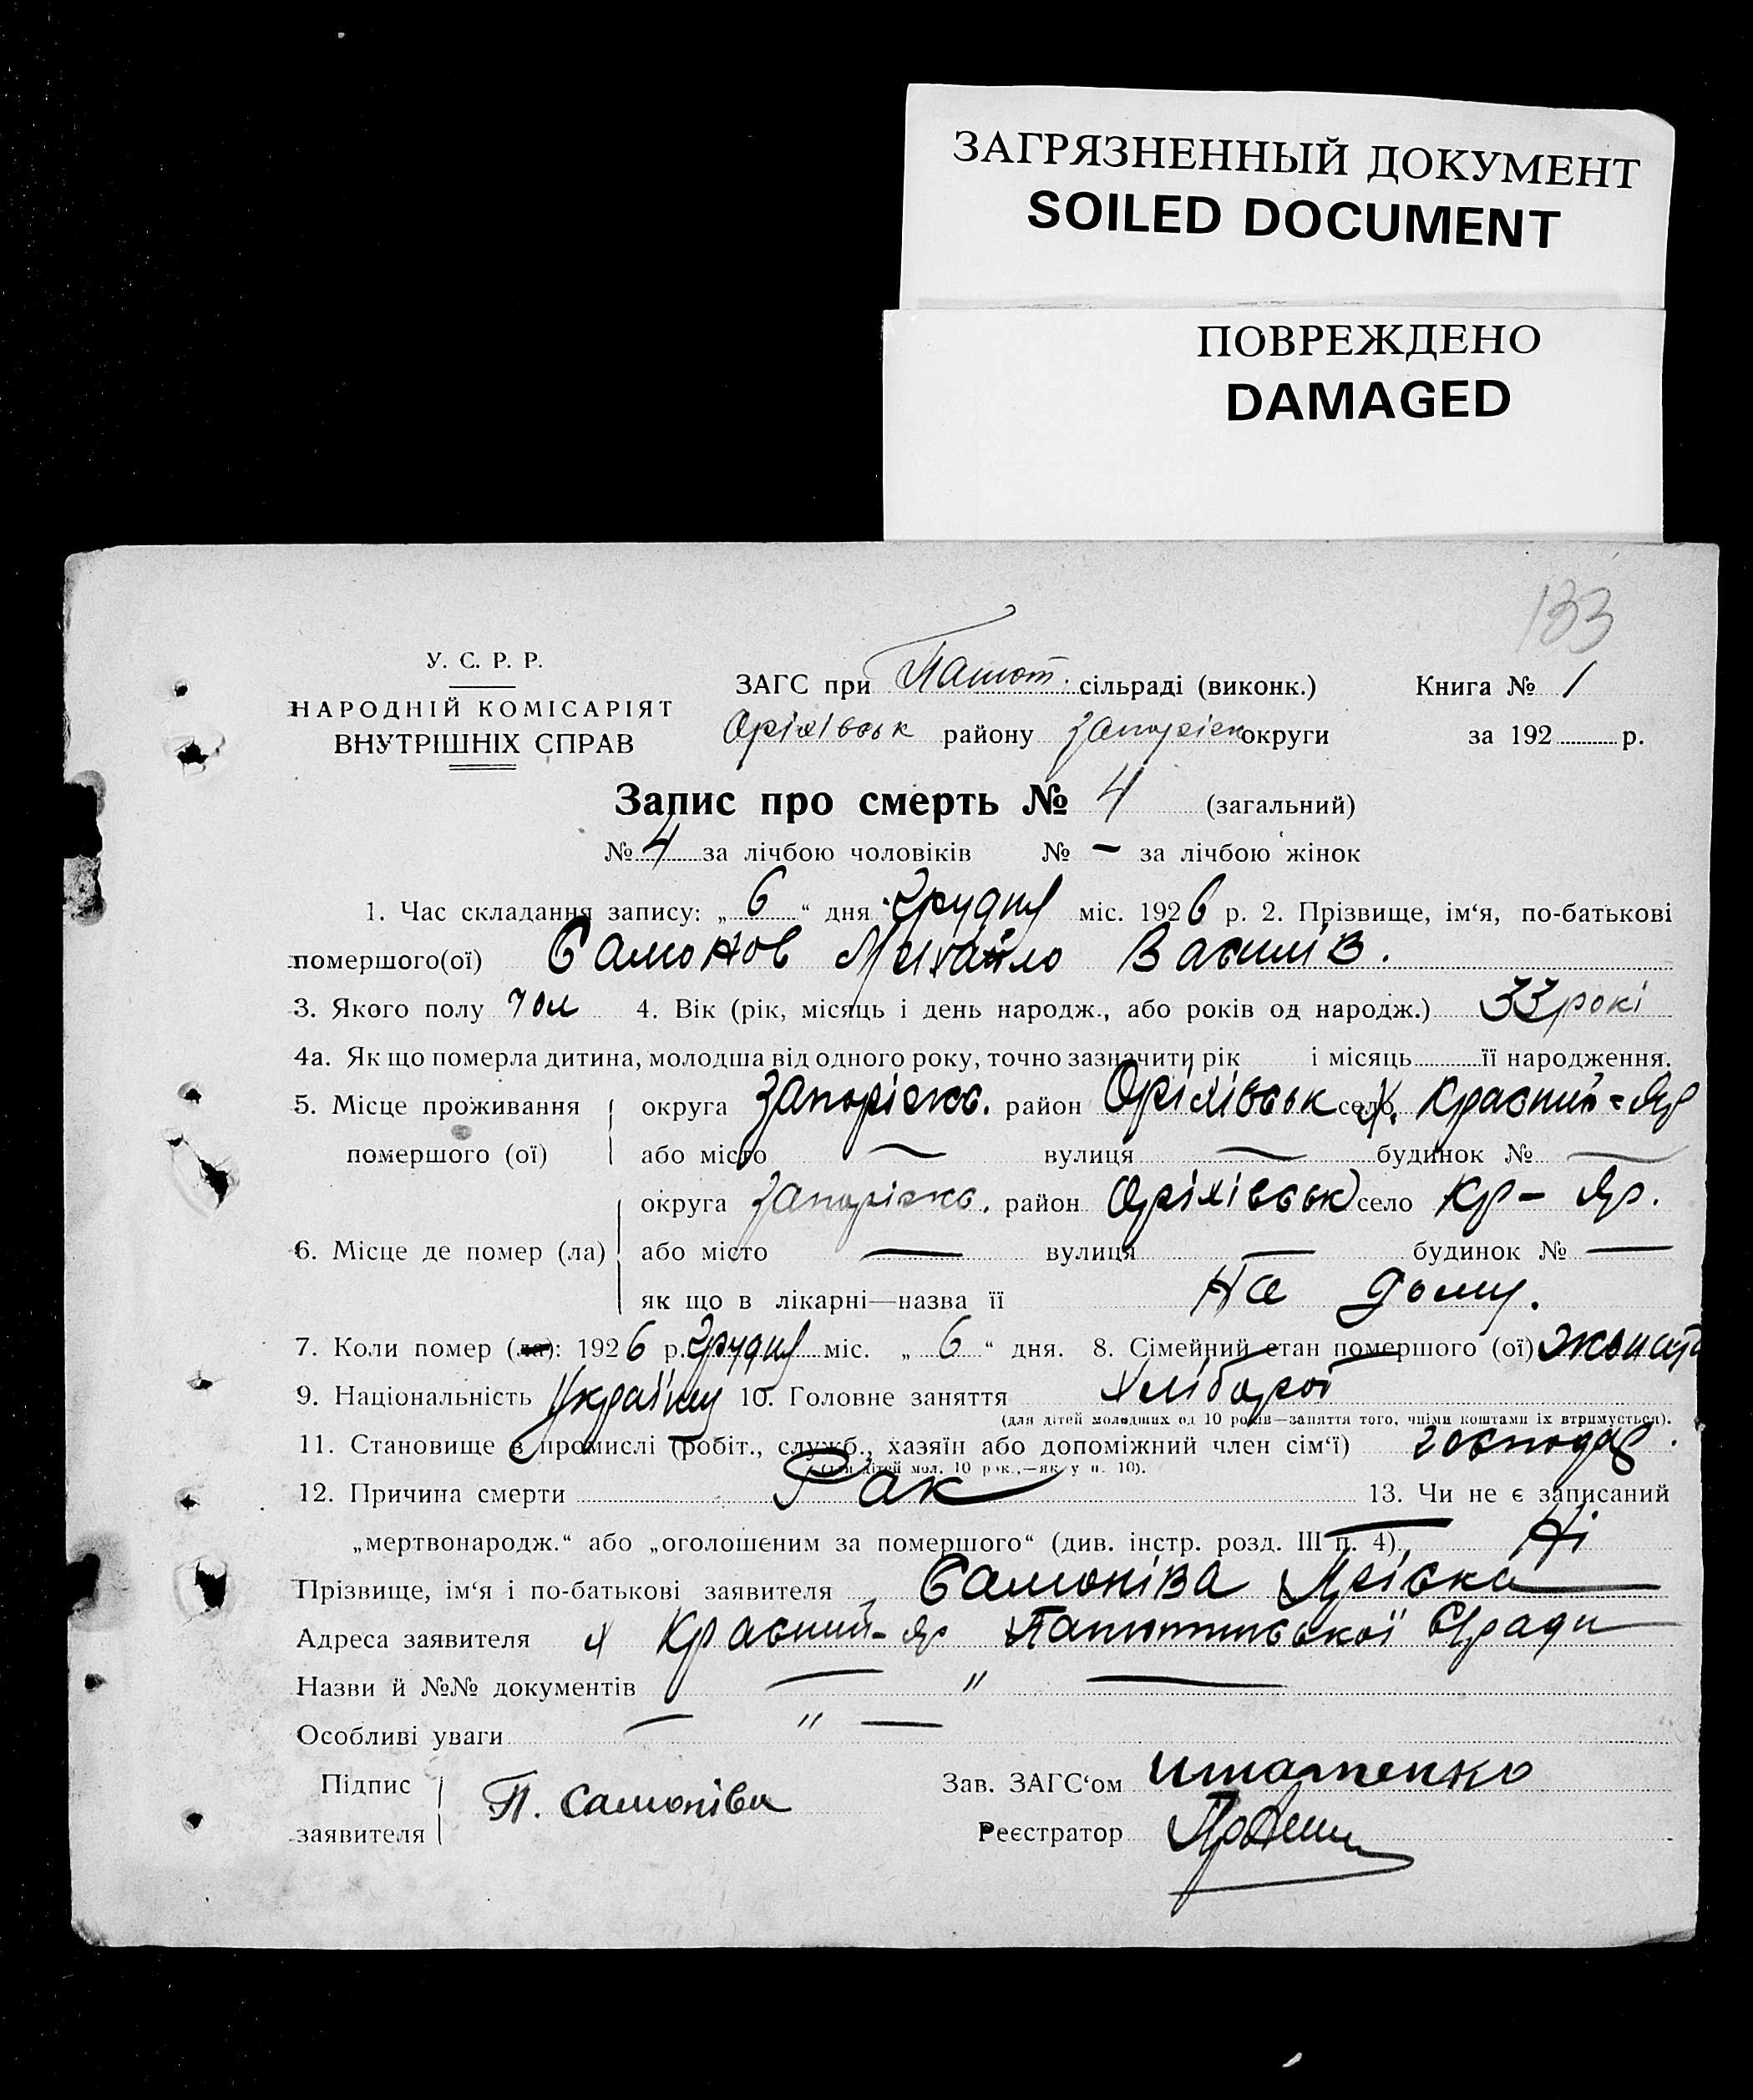 ЗАГРЯЗНЕННЫЙ ДОКУМЕНТ
SOILED DOCUMENT
ПОВРЕЖДЕНО
DAMAGED
133
У. С. Р. Р.
НАРОДНІЙ КОМІСАРІЯТ
ВНУТРІШНІХ СПРАВ
ЗАГС при сільраді (виконк.) Книга № 1
Оріхівськ району Запоріськ округи за 192 р.
Запис про смерть № 4 (загальний)
№ 4 за лічбою чоловіків № – за лічбою жінок
1. Час складання запису: „ 6 “ дня Грудня міс. 1926 р. 2. Прізвище, ім‘я, по-батькові
помершого(ої) Самонов Михайло Василів.
3. Якого полу чол 4. Вік (рік, місяць і день народж., або років од народж.) 33 рокі
4а. Як що померла дитина, молодша від одного року, точно зазначити рік і місяць її народження.
5. Місце проживання округа Запоріжс. район Оріхівськ село х. Красний-Яр
помершого (ої) або місто — вулиця — будинок № —
округа Запоріжс. район Оріхівськ село Кр – Яр.
6. Місце де помер (ла) або місто — вулиця — будинок № —
як що в лікарні—назва її На дому.
7. Коли помер (ла): 1926 р. Грудня міс. „ 6 “ дня. 8. Сімейний стан помершого (ої)
9. Національність Українц 10. Головне заняття Хлібороб
(для дітей молодших од 10 років—заняття того, чиїми коштами їх втримується).
11. Становище в промислі (робіт., служб., хазяїн або допоміжний член сім‘ї) господар.
(для дітей мол. 10 рок.,—як у п. 10).
12. Причина смерти Рак 13. Чи не є записаний
„мертвонародж.“ або „оголошеним за помершого“ (див. інстр. розд. III п. 4) Ні
Прізвище, ім‘я і по-батькові заявителя Самоніва
Адреса заявителя х Красний-Яр С/ради
Назви й №№ документів — „ —
Особливі уваги — „ —
Підпис
заявителя П. Самоніва
Зав. ЗАГС‘ом
Реєстратор